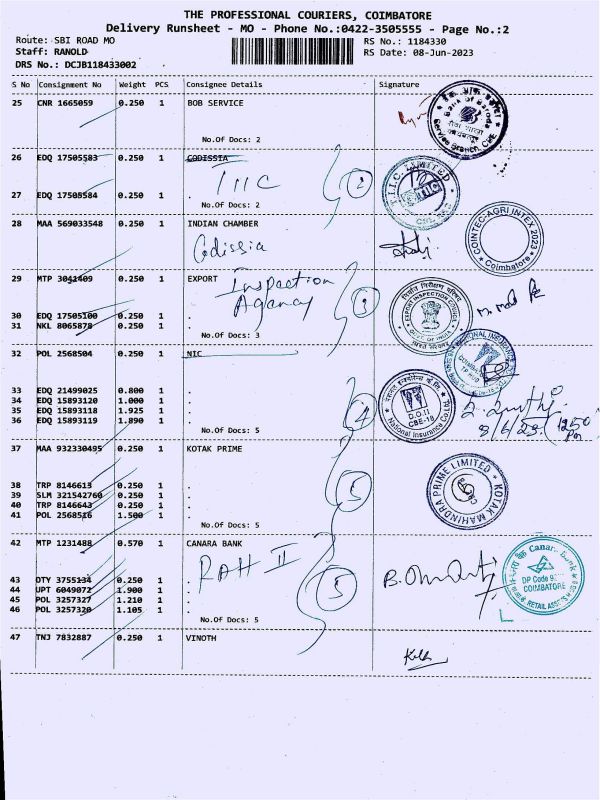 THE PROFESSIONAL COURIERS, COIMBATORE
Delivery Runsheet - MO - Phone No.:0422-3505555 - Page No.:2
Route: SBI ROAD MO RS No.: 1184330
Staff: RANOLD RS Date: 08-Jun-2023
DRS No.: DCJB118433002
S No Consignment No Weight PCS Consignee Details Signature
25 CNR 1665059 0.250 1 BOB SERVICE
Bank of Baroda
Service Branch, CBE
No.Of Docs: 2
26 EDQ 17505583 0.250 1 CODISSIA
TIIC 2
T.I.I.C. LIMITED
27 EDQ 17505584 0.250 1 .
No.Of Docs: 2
28 MAA 569033548 0.250 1 INDIAN CHAMBER
Codissia
COINTEC-AGRI INTEX 2023
Coimbatore
29 MTP 3041409 0.250 1 EXPORT
Inspection
Agency 3
EXPORT INSPECTION COUNCIL
GOVT. OF INDIA
30 EDQ 17505100 0.250 1 .
31 NKL 8065878 0.250 1 .
No.Of Docs: 3
32 POL 2568504 0.250 1 NIC
33 EDQ 21499025 0.800 1 .
34 EDQ 15893120 1.000 1 .
35 EDQ 15893118 1.925 1 .
36 EDQ 15893119 1.890 1 .
4
D.O.II
CBE-18
National Insurance Co Ltd
8/6/23. 1250
Pm
No.Of Docs: 5
37 MAA 932330495 0.250 1 KOTAK PRIME
38 TRP 8146613 0.250 1 .
39 SLM 321542760 0.250 1 .
40 TRP 8146643 0.250 1 .
41 POL 2568516 1.500 1 .
5
KOTAK MAHINDRA PRIME LIMITED
No.Of Docs: 5
42 MTP 1231488 0.570 1 CANARA BANK
RAH II
43 OTY 3755134 0.250 1 .
44 UPT 6049072 1.900 1 .
45 POL 3257327 1.210 1 .
46 POL 3257320 1.105 1 .
5
Canara bank
DP Code
COIMBATORE
RETAIL ASSETS
No.Of Docs: 5
47 TNJ 7832887 0.250 1 VINOTH